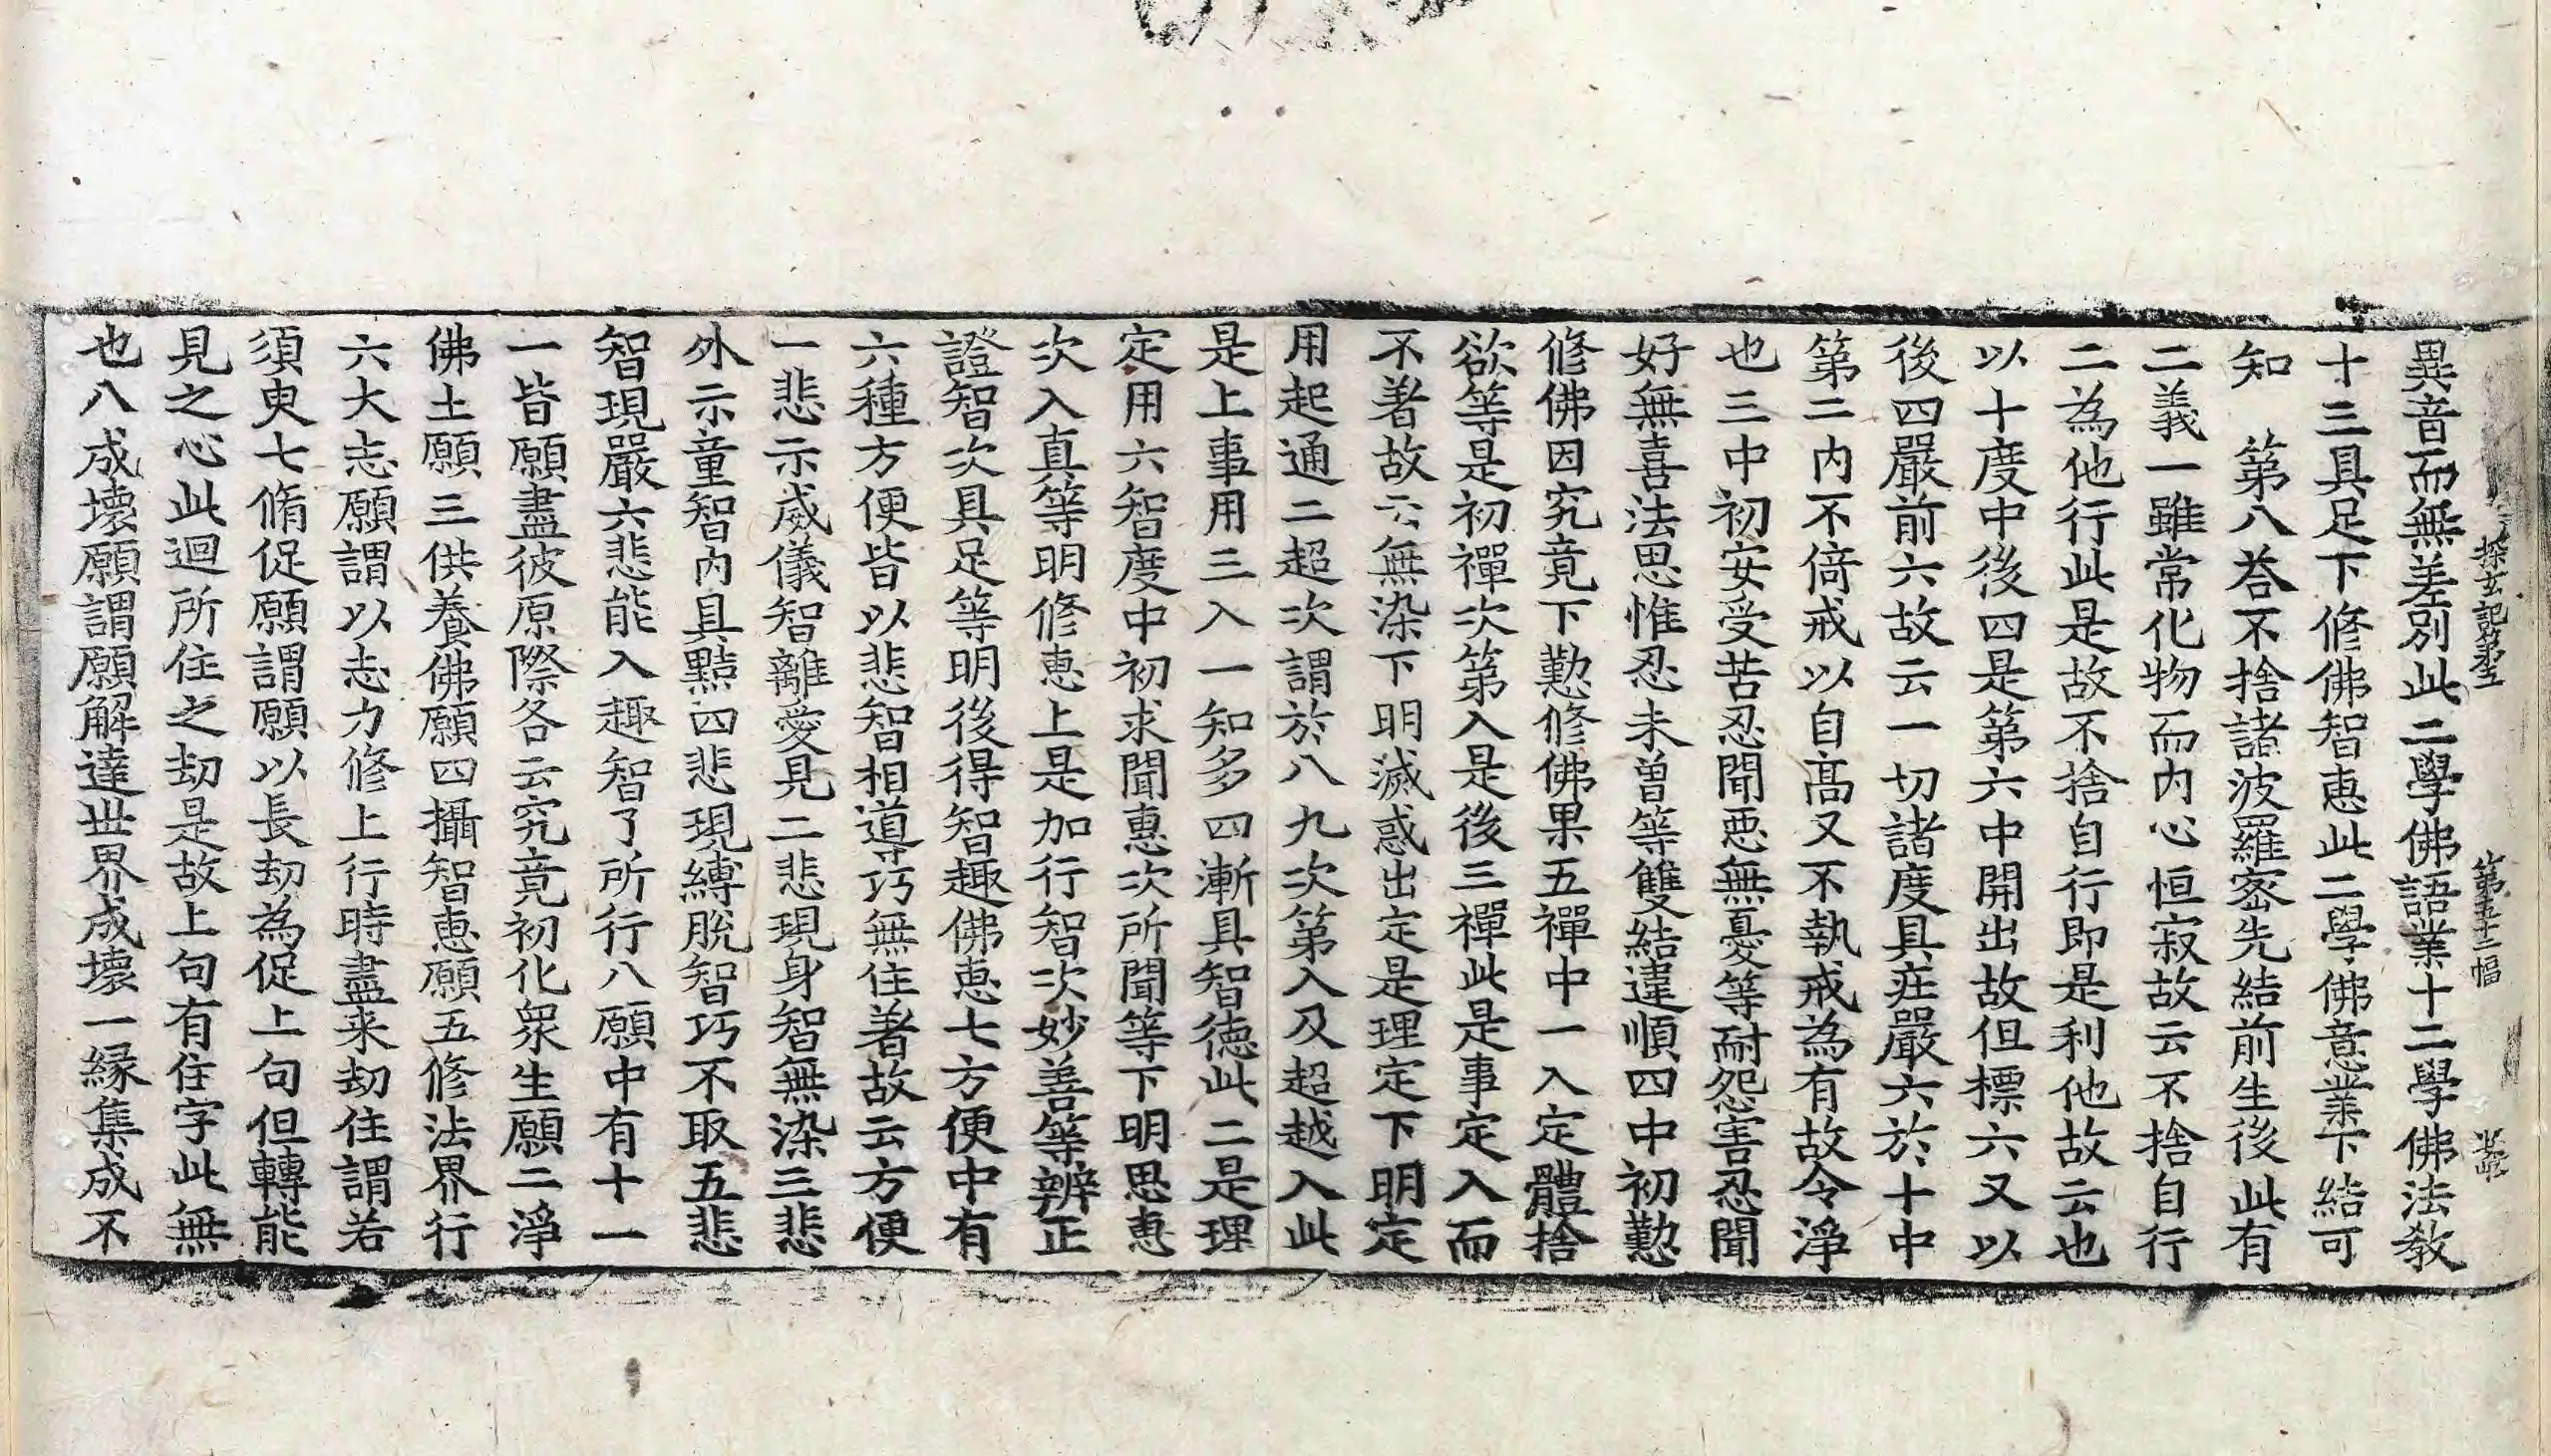 異音而無差別此二學佛語業十二學佛法教
十三具足下修佛智恵此二學佛意業下結可
知　第八荅不捨諸波羅宻先結前生後此有
二義一雖常化物而内心恒寂故云不捨自行
二為他行此是故不捨自行即是利他故云也
以十度中後四是第六中開出故但標六又以
後四嚴前六故云一切諸度具庄嚴六於十中
第二内不倚戒以自高又不執戒為有故令淨
也三中初安受苦忍聞恶無憂等耐怨害忍聞
好無喜法思惟忍未曽等雙結違順四中初懃
修佛因究竟下懃修佛果五禪中一入定體捨
欲等是初禪次第入是後三禪此是事定入而
不著故云無染下明滅惑出定是理定下明定
用起通二超次謂於八九次第入及超越入此
是上事用三入一知多四漸具智德此二是理
定用六智度中初求聞恵次所聞等下明思恵
次入真等明修恵上是加行智次妙善等辨正
證智次具足等明後得智趣佛恵七方便中有
六種方便皆以悲智相導巧無住著故云方便
一悲示威儀智離愛見二悲現身智無染三悲
外示童智内具黠四悲現縛脫智巧不取五悲
智現嚴六悲能入趣智了所行八願中有十一
一皆願盡彼原際各云究竟初化衆生願二淨
佛土願三供養佛願四攝智恵願五修法界行
六大志願謂以志力修上行時盡来劫住謂若
須㬰七脩促願謂願以長劫為促上句但轉能
見之心此迴所住之劫是故上句有住字此無
也八成壊願謂願解達世界成壊一縁集成不